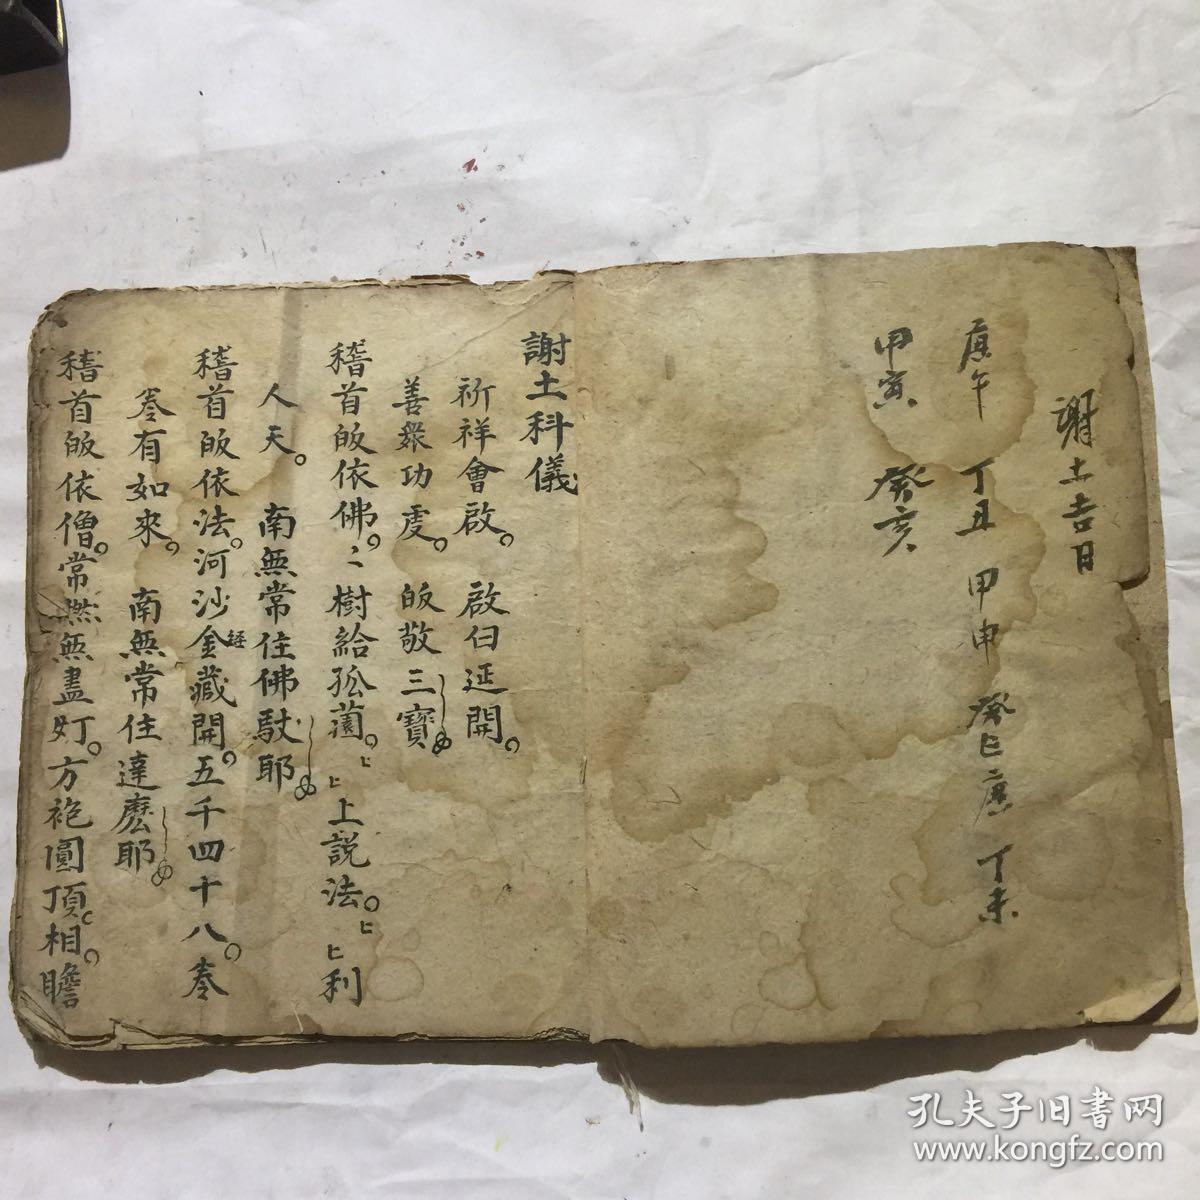 謝土吉日
庚午 丁丑 甲申 癸巳 庚 丁未
甲寅 癸亥
謝土科儀
祈祥會啟。 啟白延開。
善眾功虔。 皈敬三寶。
稽首皈依佛。〻樹給孤薗。〻〻上說法。〻〻利
人天。 南無常住佛馱耶。
稽首皈依法。河沙金經藏開。五千四十八。卷
卷有如來。 南無常住達麼耶。
稽首皈依僧。常燃無盡灯。方袍圓頂相。瞻
孔夫子旧書网
www.kongfz.com